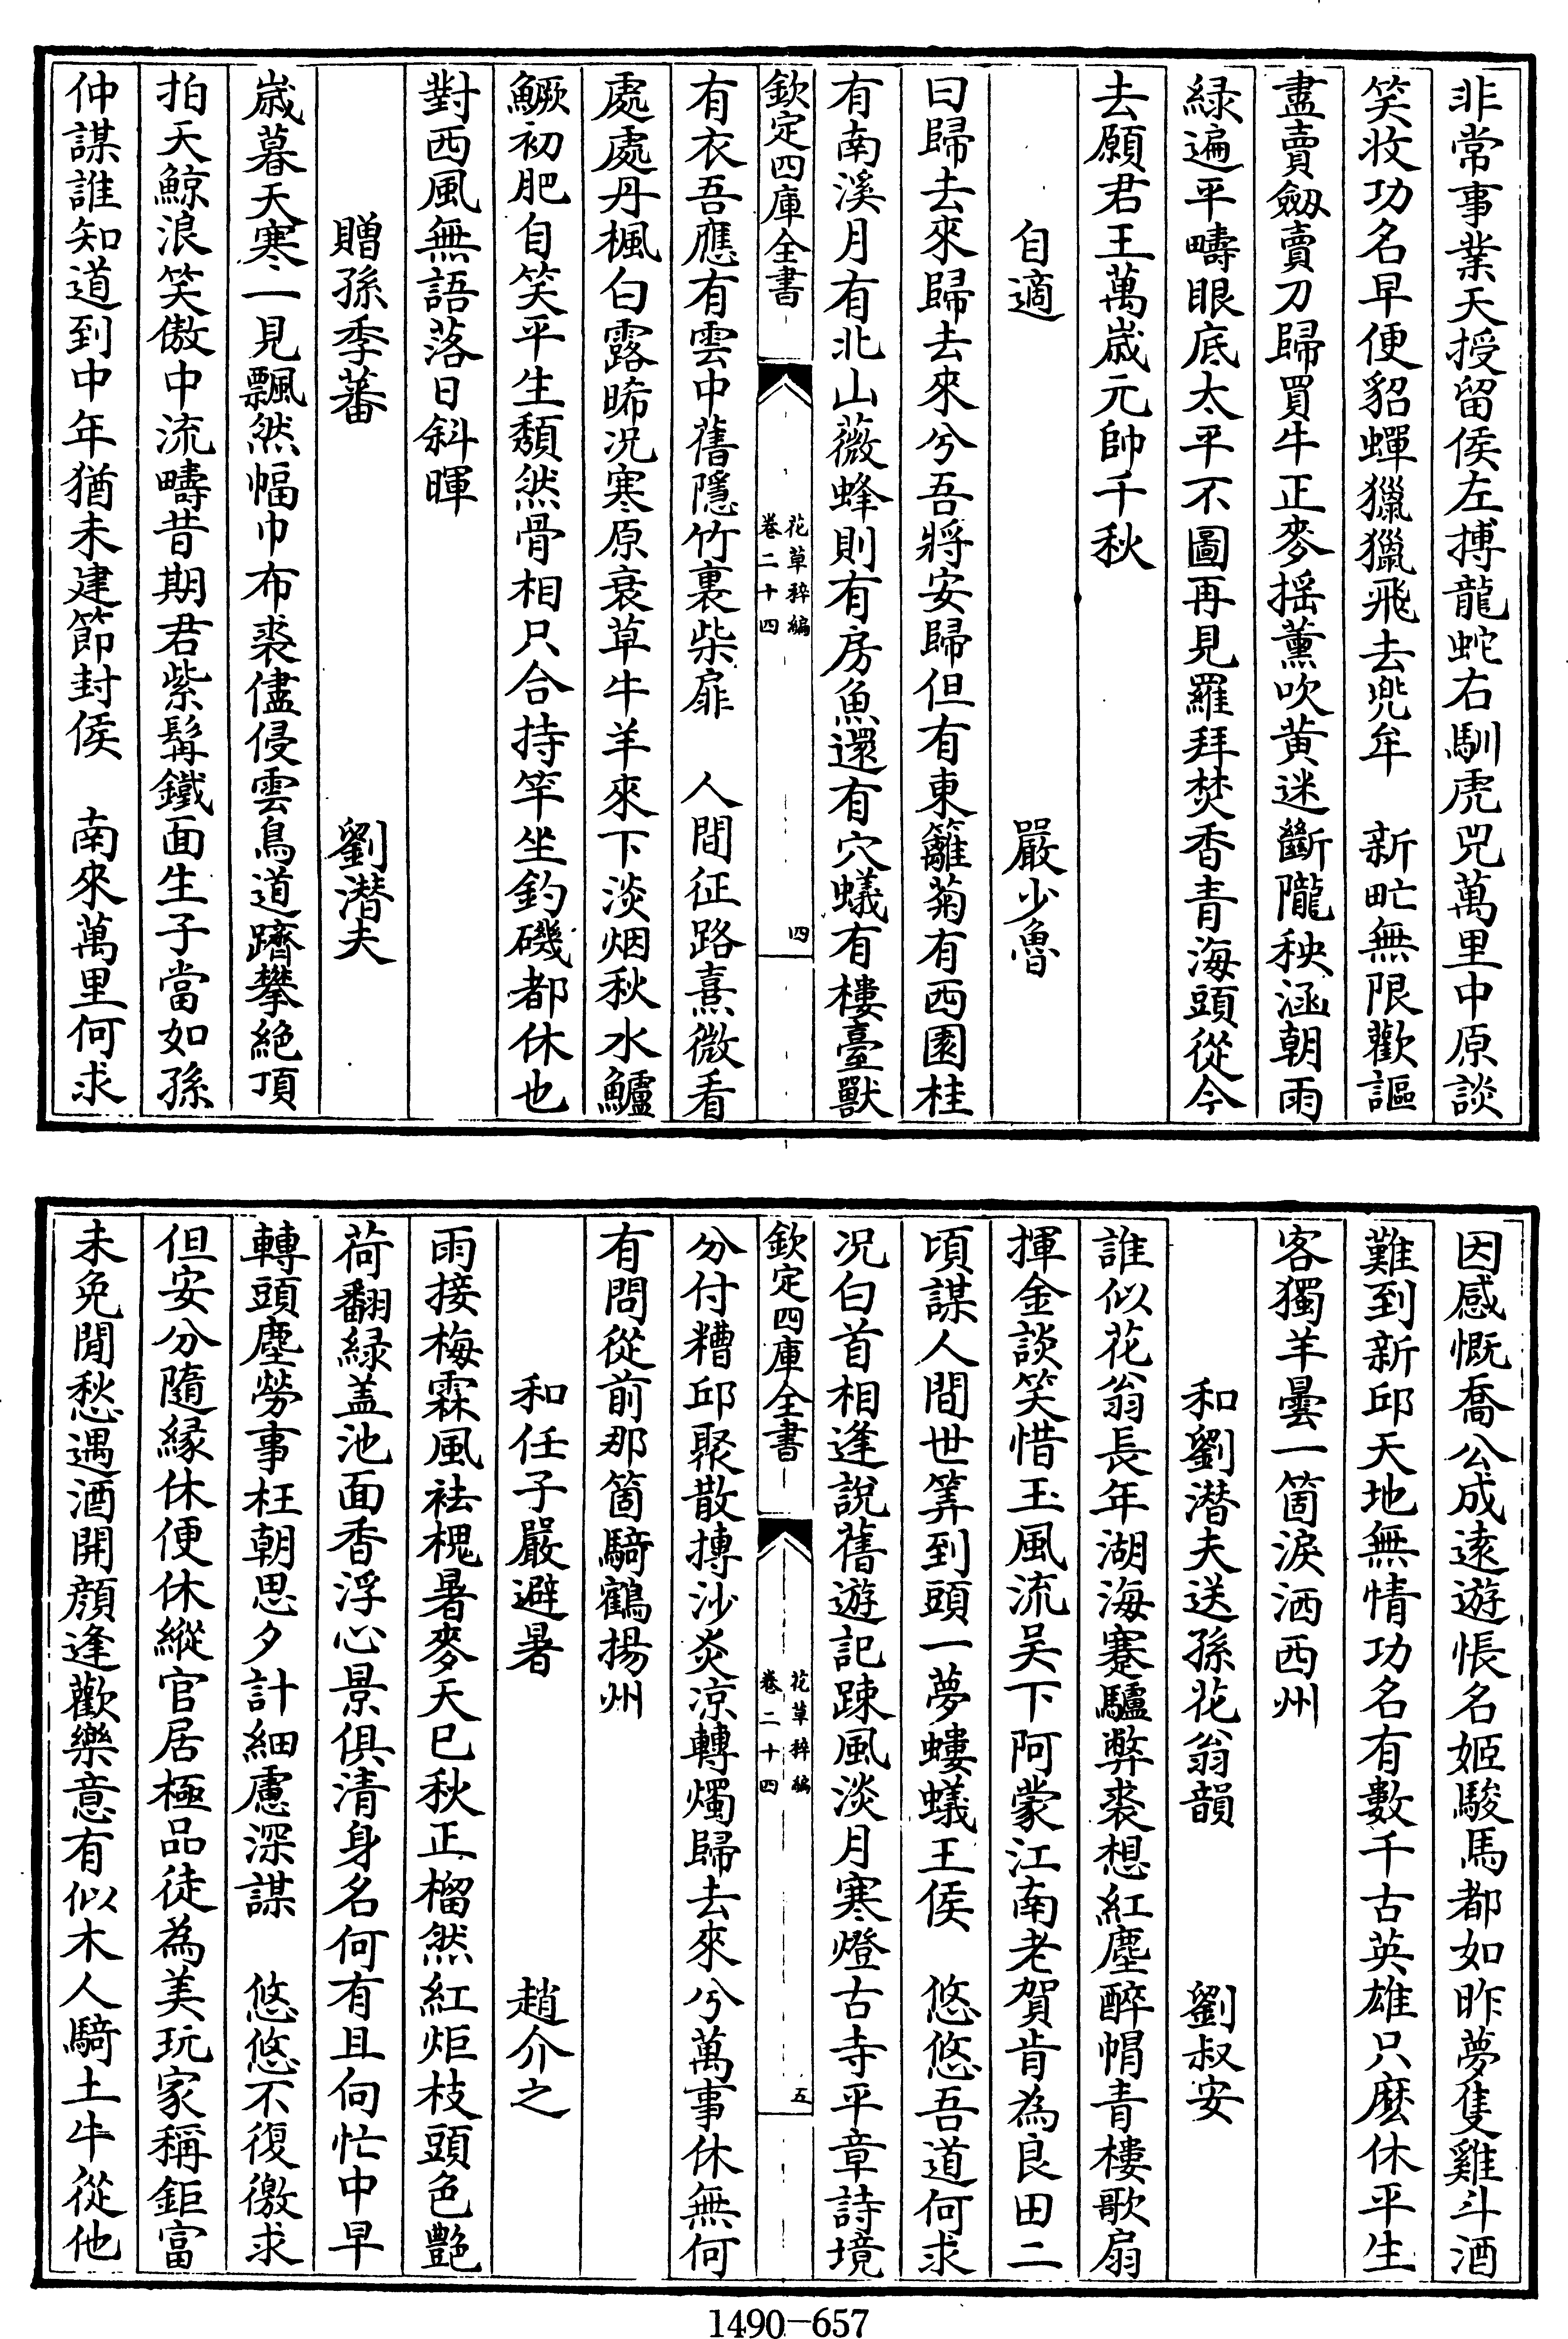 非常事業天授留侯左搏龍蛇右馴虎兕萬里中原談
笑收功名早便貂蟬獵獵飛去兜牟　新甿無限歡謳
盡賣劔賣刀歸買牛正麥揺薰吹黄迷斷隴秧涵朝雨
緑遍平疇眼底太平不圖再見羅拜焚香青海頭從今
去願君王萬嵗元帥千秋
自適　嚴少魯
曰歸去來歸去來兮吾將安歸但有東籬菊有西園桂
有南溪月有北山薇蜂則有房魚還有穴蟻有樓臺獸
欽定四庫全書
花草稡編
卷二十四
四
有衣吾應有雲中舊隱竹裏柴扉　人間征路熹微看
處處丹楓白露晞况寒原衰草牛羊來下淡烟秋水鱸
鱖初肥自笑平生頽然骨相只合持竿坐釣磯都休也
對西風無語落日斜暉
贈孫季蕃　劉潛夫
嵗暮天寒一見飄然幅巾布裘儘侵雲鳥道躋攀絶頂
拍天鯨浪笑傲中流疇昔期君紫髯鐵面生子當如孫
仲謀誰知道到中年猶未建節封侯　南來萬里何求
因感慨喬公成遠遊悵名姬駿馬都如昨夢隻雞斗酒
難到新邱天地無情功名有數千古英雄只麽休平生
客獨羊曇一箇淚洒西州
和劉潛夫送孫花翁韻　劉叔安
誰似花翁長年湖海蹇驢弊裘想紅塵醉帽青樓歌扇
揮金談笑惜玉風流吴下阿蒙江南老賀肯為良田二
頃謀人間世筭到頭一夢螻蟻王侯　悠悠吾道何求
况白首相逢說舊遊記踈風淡月寒燈古寺平章詩境
欽定四庫全書
花草稡編
卷二十四
五
分付糟邱聚散摶沙炎凉轉燭歸去來兮萬事休無何
有問從前那箇騎鶴揚州
和任子嚴避暑　趙介之
雨接梅霖風袪槐暑麥天已秋正榴然紅炬枝頭色艷
荷翻緑盖池面香浮心景俱清身名何有且向忙中早
轉頭塵勞事枉朝思夕計細慮深謀　悠悠不復徼求
但安分隨縁休便休縱官居極品徒為美玩家稱鉅富
未免閒愁遇酒開顔逢歡樂意有似木人騎土牛從他
1490-657